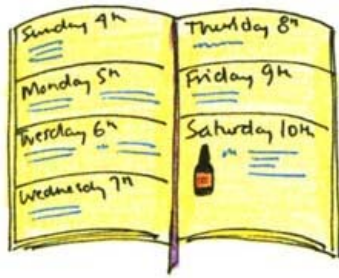 Sunday 4th
Monday 5th
Tuesday 6th
Wednesday 7th
Thursday 8th
Friday 9th
Saturday 10th